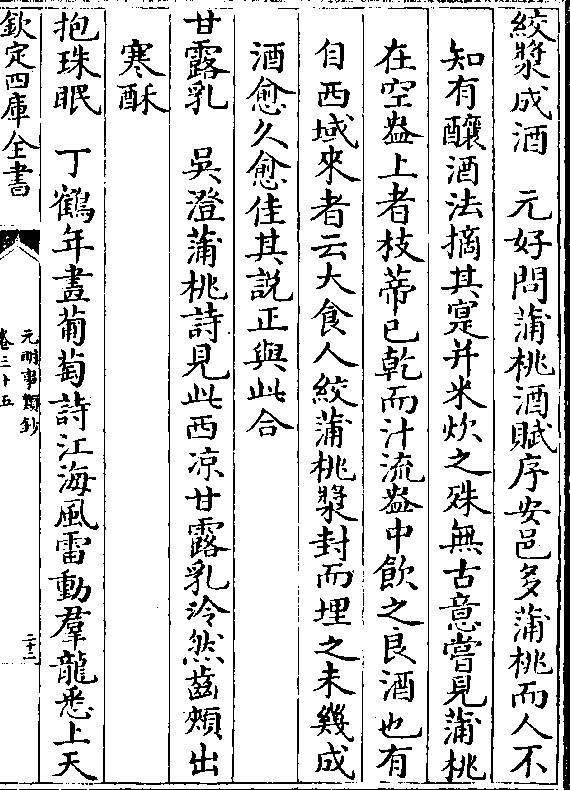 絞漿成酒　元好問蒲桃酒賦序安邑多蒲桃而人不
知有釀酒法摘其寔并米炊之殊無古意嘗見蒲桃
在空盎上者枝蒂已乾而汁流盎中飲之良酒也有
自西域來者云大食人絞蒲桃漿封而埋之未幾成
酒愈久愈佳其説正與此合
甘露乳　吳澄蒲桃詩見此西凉甘露乳泠然齒頰出
寒酥
抱珠眠　丁鶴年畫葡萄詩江海風雷動羣龍悉上天
欽定四庫全書
元明事類鈔
卷三十五
二十二